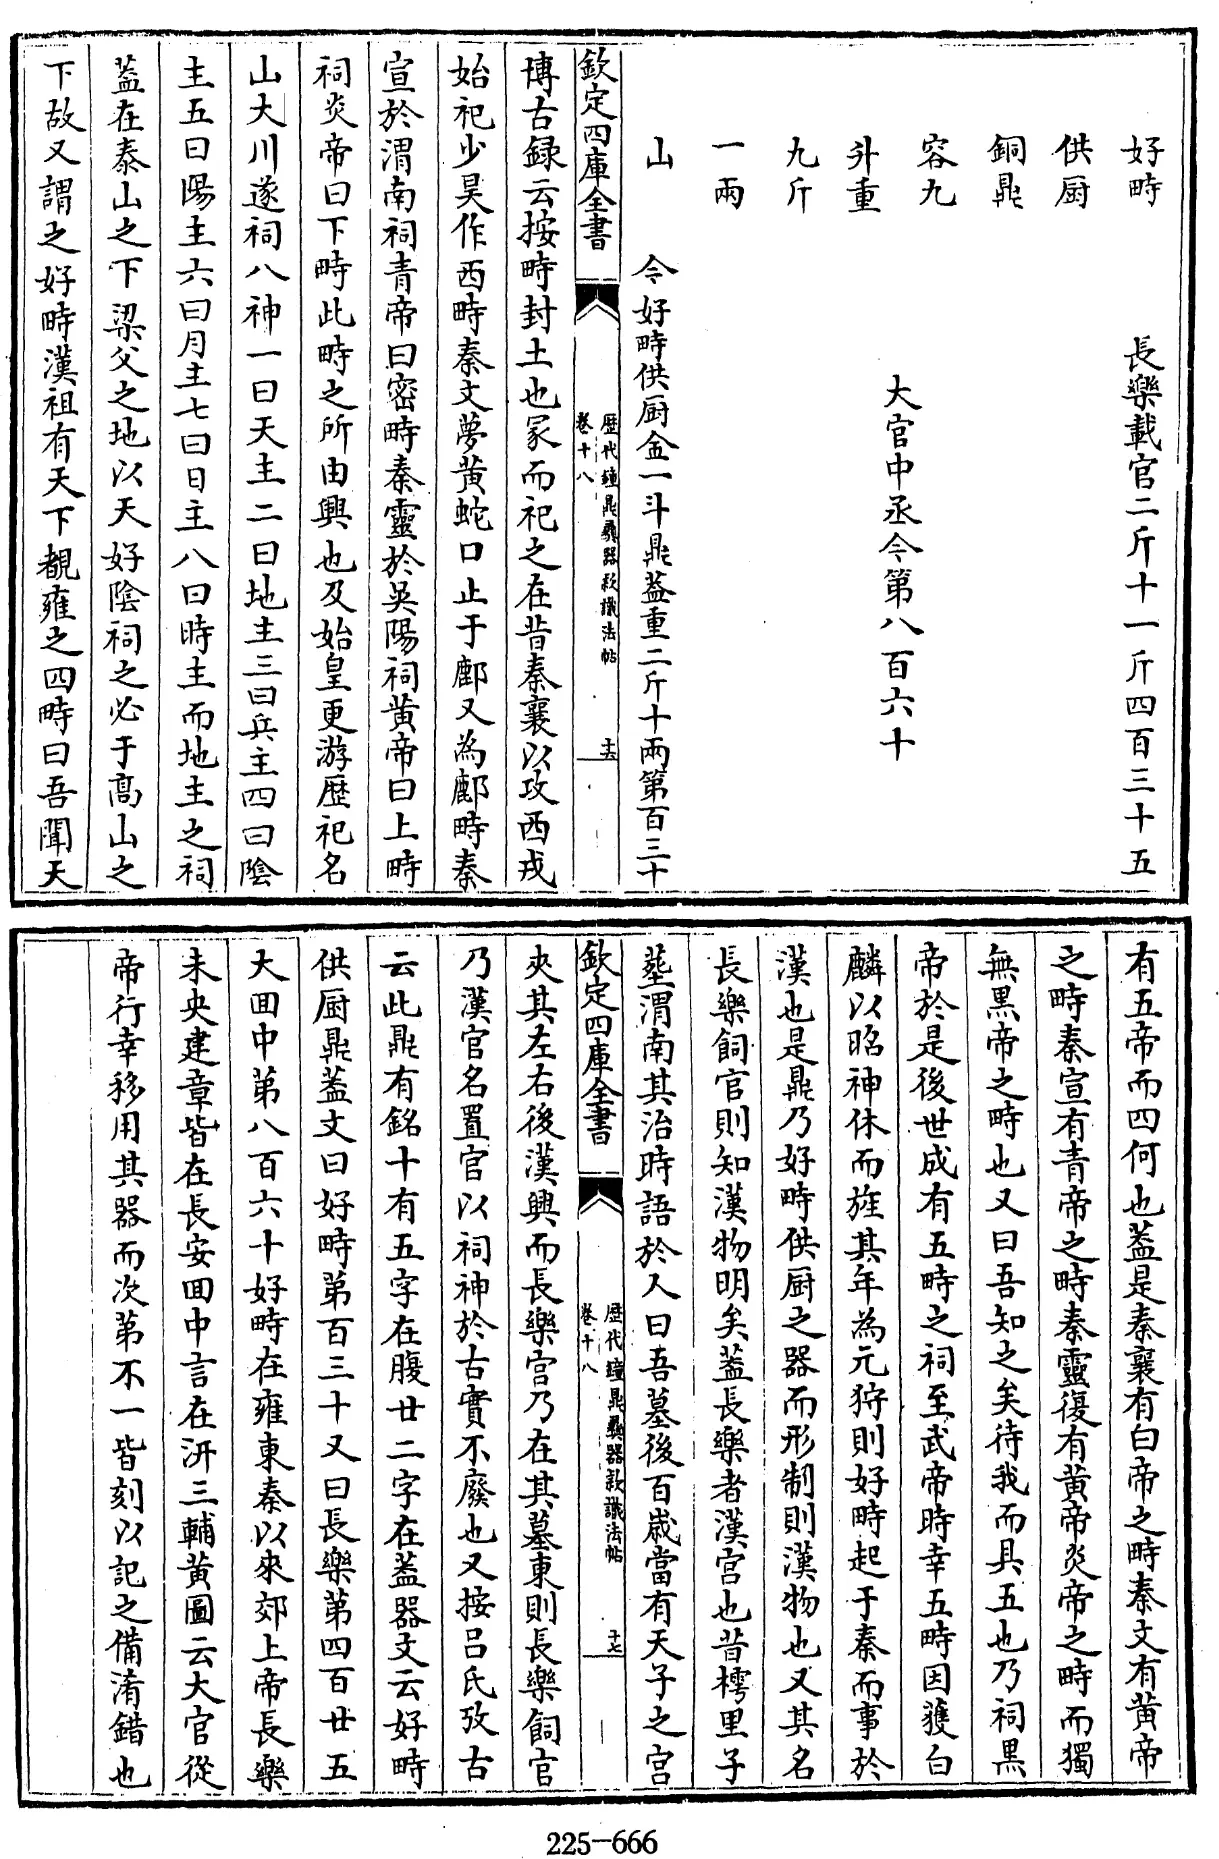 好畤
長樂載官二斤十一斤四百三十五
供厨
銅鼎
容九
大官中丞令第八百六十
升重
九斤
一兩
山
今好畤供厨金一斗鼎葢重二斤十兩第百三十
欽定四庫全書
歴代鐘鼎彝器款識法帖
卷十八
十六
博古録云按畤封土也冡而祀之在昔秦襄以攻西戎
始祀少昊作西畤秦文夢黄蛇口止于鄜又為鄜畤秦
宣於渭南祠青帝曰密畤秦靈於吳陽祠黄帝曰上畤
祠炎帝曰下畤此畤之所由興也及始皇更游歴祀名
山大川遂祠八神一曰天主二曰地主三曰兵主四曰隂
主五曰陽主六曰月主七曰日主八曰時主而地主之祠
葢在泰山之下梁父之地以天好隂祠之必于髙山之
下故又謂之好畤漢祖有天下覩雍之四畤曰吾聞天
有五帝而四何也葢是秦襄有白帝之畤秦文有黄帝
之畤秦宣有青帝之畤秦靈復有黄帝炎帝之畤而獨
無黒帝之畤也又曰吾知之矣待我而具五也乃祠黒
帝於是後世成有五畤之祠至武帝時幸五畤因獲白
麟以昭神休而旌其年為元狩則好畤起于秦而事於
漢也是鼎乃好畤供厨之器而形制則漢物也又其名
長樂飼官則知漢物明矣葢長樂者漢宫也昔樗里子
塟渭南其治時語於人曰吾墓後百嵗當有天子之宫
欽定四庫全書
歴代鐘鼎彝器款識法帖
卷十八
十七
夾其左右後漢興而長樂宫乃在其墓東則長樂飼官
乃漢官名置官以祠神於古實不廢也又按吕氏攷古
云此鼎有銘十有五字在腹廿二字在葢器文云好畤
供厨鼎葢文曰好畤第百三十又曰長樂第四百廿五
大囬中第八百六十好畤在雍東秦以來郊上帝長樂
未央建章皆在長安囬中言在汧三輔黄圖云大官從
帝行幸移用其器而次第不一皆刻以記之備淆錯也
225-666